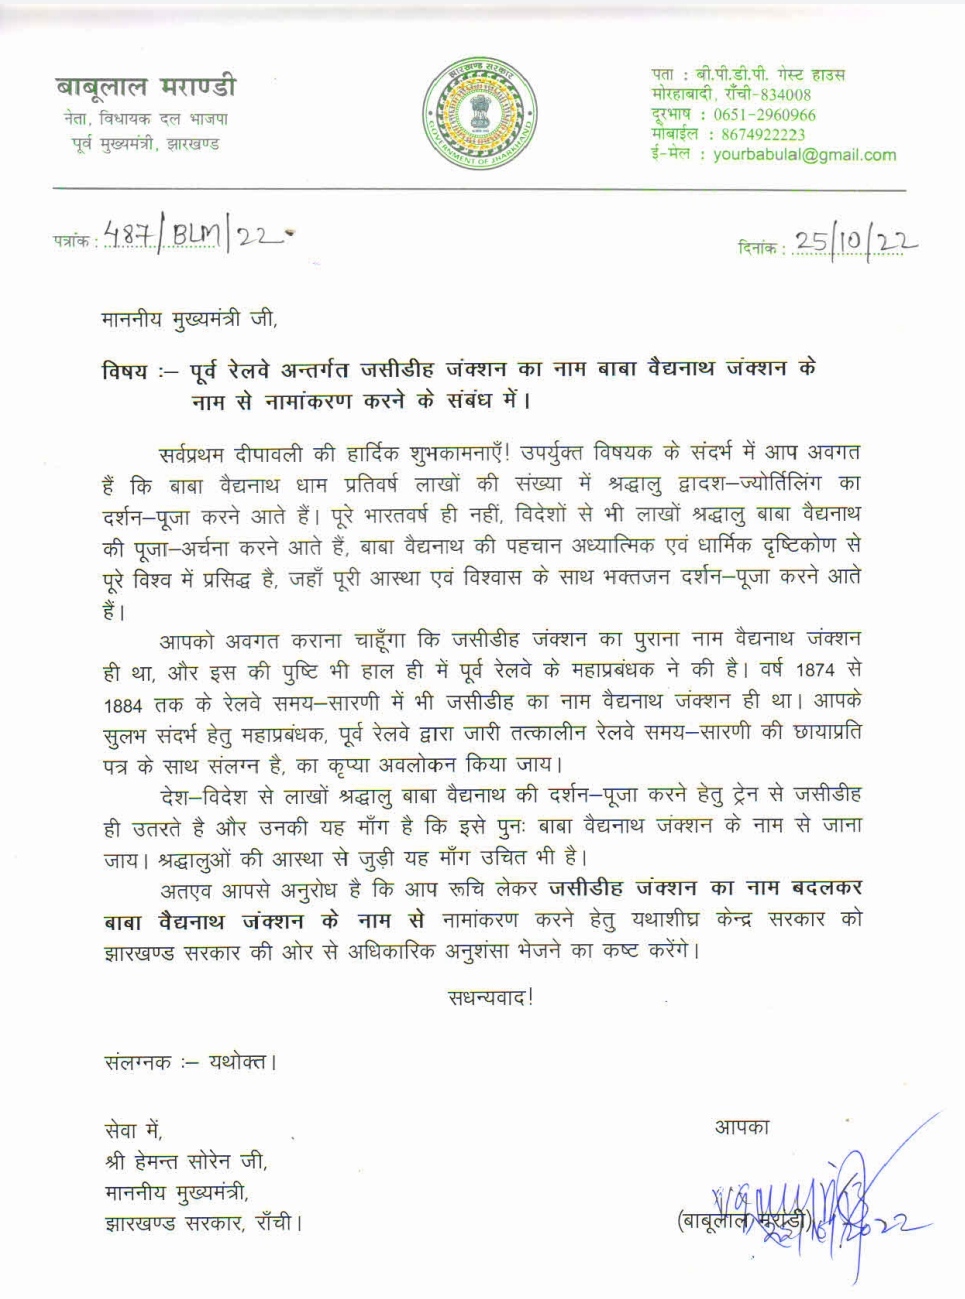 बाबूलाल मराण्डी
नेता, विधायक दल भाजपा
पूर्व मुख्यमंत्री, झारखण्ड
झारखण्ड सरकार
GOVERNMENT OF JHARKHAND
पता : बी.पी.डी.पी. गेस्ट हाउस
मोरहाबादी, राँची-834008
दूरभाष : 0651-2960966
मोबाईल : 8674922223
ई-मेल : yourbabulal@gmail.com
पत्रांक : 487/BLM/22
दिनांक : 25/10/22
माननीय मुख्यमंत्री जी,
विषय :– पूर्व रेलवे अन्तर्गत जसीडीह जंक्शन का नाम बाबा वैद्यनाथ जंक्शन के
नाम से नामांकरण करने के संबंध में।
सर्वप्रथम दीपावली की हार्दिक शुभकामनाएँ! उपर्युक्त विषयक के संदर्भ में आप अवगत
हैं कि बाबा वैद्यनाथ धाम प्रतिवर्ष लाखों की संख्या में श्रद्धालु द्वादश–ज्योर्तिलिंग का
दर्शन–पूजा करने आते हैं। पूरे भारतवर्ष ही नहीं, विदेशों से भी लाखों श्रद्धालु बाबा वैद्यनाथ
की पूजा–अर्चना करने आते हैं, बाबा वैद्यनाथ की पहचान अध्यात्मिक एवं धार्मिक दृष्टिकोण से
पूरे विश्व में प्रसिद्ध है, जहाँ पूरी आस्था एवं विश्वास के साथ भक्तजन दर्शन–पूजा करने आते
हैं।
आपको अवगत कराना चाहूँगा कि जसीडीह जंक्शन का पुराना नाम वैद्यनाथ जंक्शन
ही था, और इस की पुष्टि भी हाल ही में पूर्व रेलवे के महाप्रबंधक ने की है। वर्ष 1874 से
1884 तक के रेलवे समय–सारणी में भी जसीडीह का नाम वैद्यनाथ जंक्शन ही था। आपके
सुलभ संदर्भ हेतु महाप्रबंधक, पूर्व रेलवे द्वारा जारी तत्कालीन रेलवे समय–सारणी की छायाप्रति
पत्र के साथ संलग्न है, का कृप्या अवलोकन किया जाय।
देश–विदेश से लाखों श्रद्धालु बाबा वैद्यनाथ की दर्शन–पूजा करने हेतु ट्रेन से जसीडीह
ही उतरते है और उनकी यह माँग है कि इसे पुनः बाबा वैद्यनाथ जंक्शन के नाम से जाना
जाय। श्रद्धालुओं की आस्था से जुड़ी यह माँग उचित भी है।
अतएव आपसे अनुरोध है कि आप रूचि लेकर जसीडीह जंक्शन का नाम बदलकर
बाबा वैद्यनाथ जंक्शन के नाम से नामांकरण करने हेतु यथाशीघ्र केन्द्र सरकार को
झारखण्ड सरकार की ओर से अधिकारिक अनुशंसा भेजने का कष्ट करेंगे।
सधन्यवाद!
संलग्नक :– यथोक्त।
सेवा में,
श्री हेमन्त सोरेन जी,
माननीय मुख्यमंत्री,
झारखण्ड सरकार, राँची।
आपका
(बाबूलाल मरांडी)